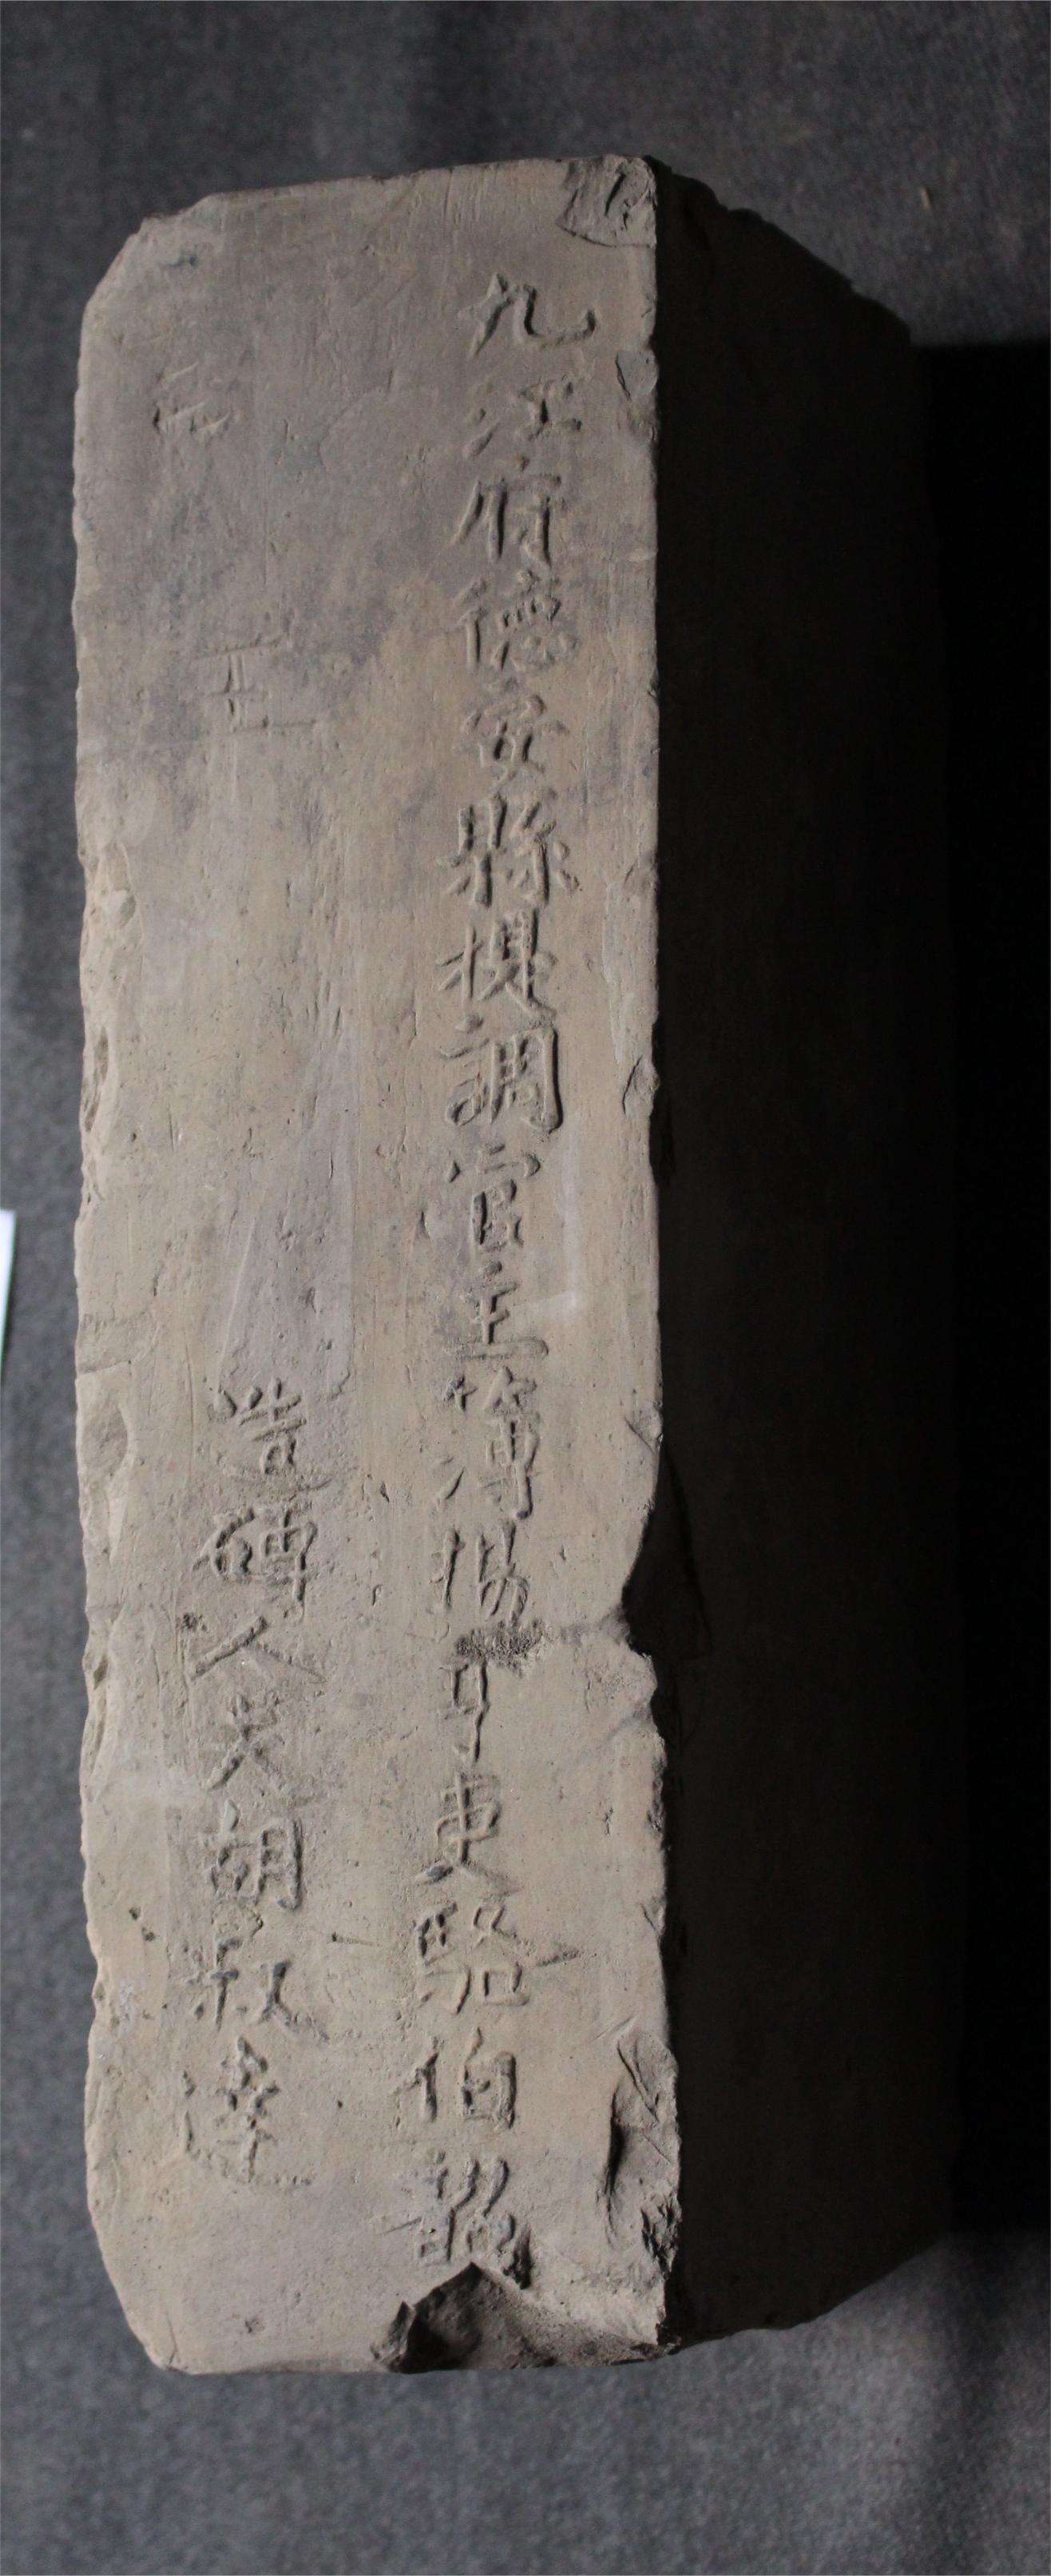 九江府德安縣提調官主簿揚亨吏駱伯韶
造磚人夫胡叔達